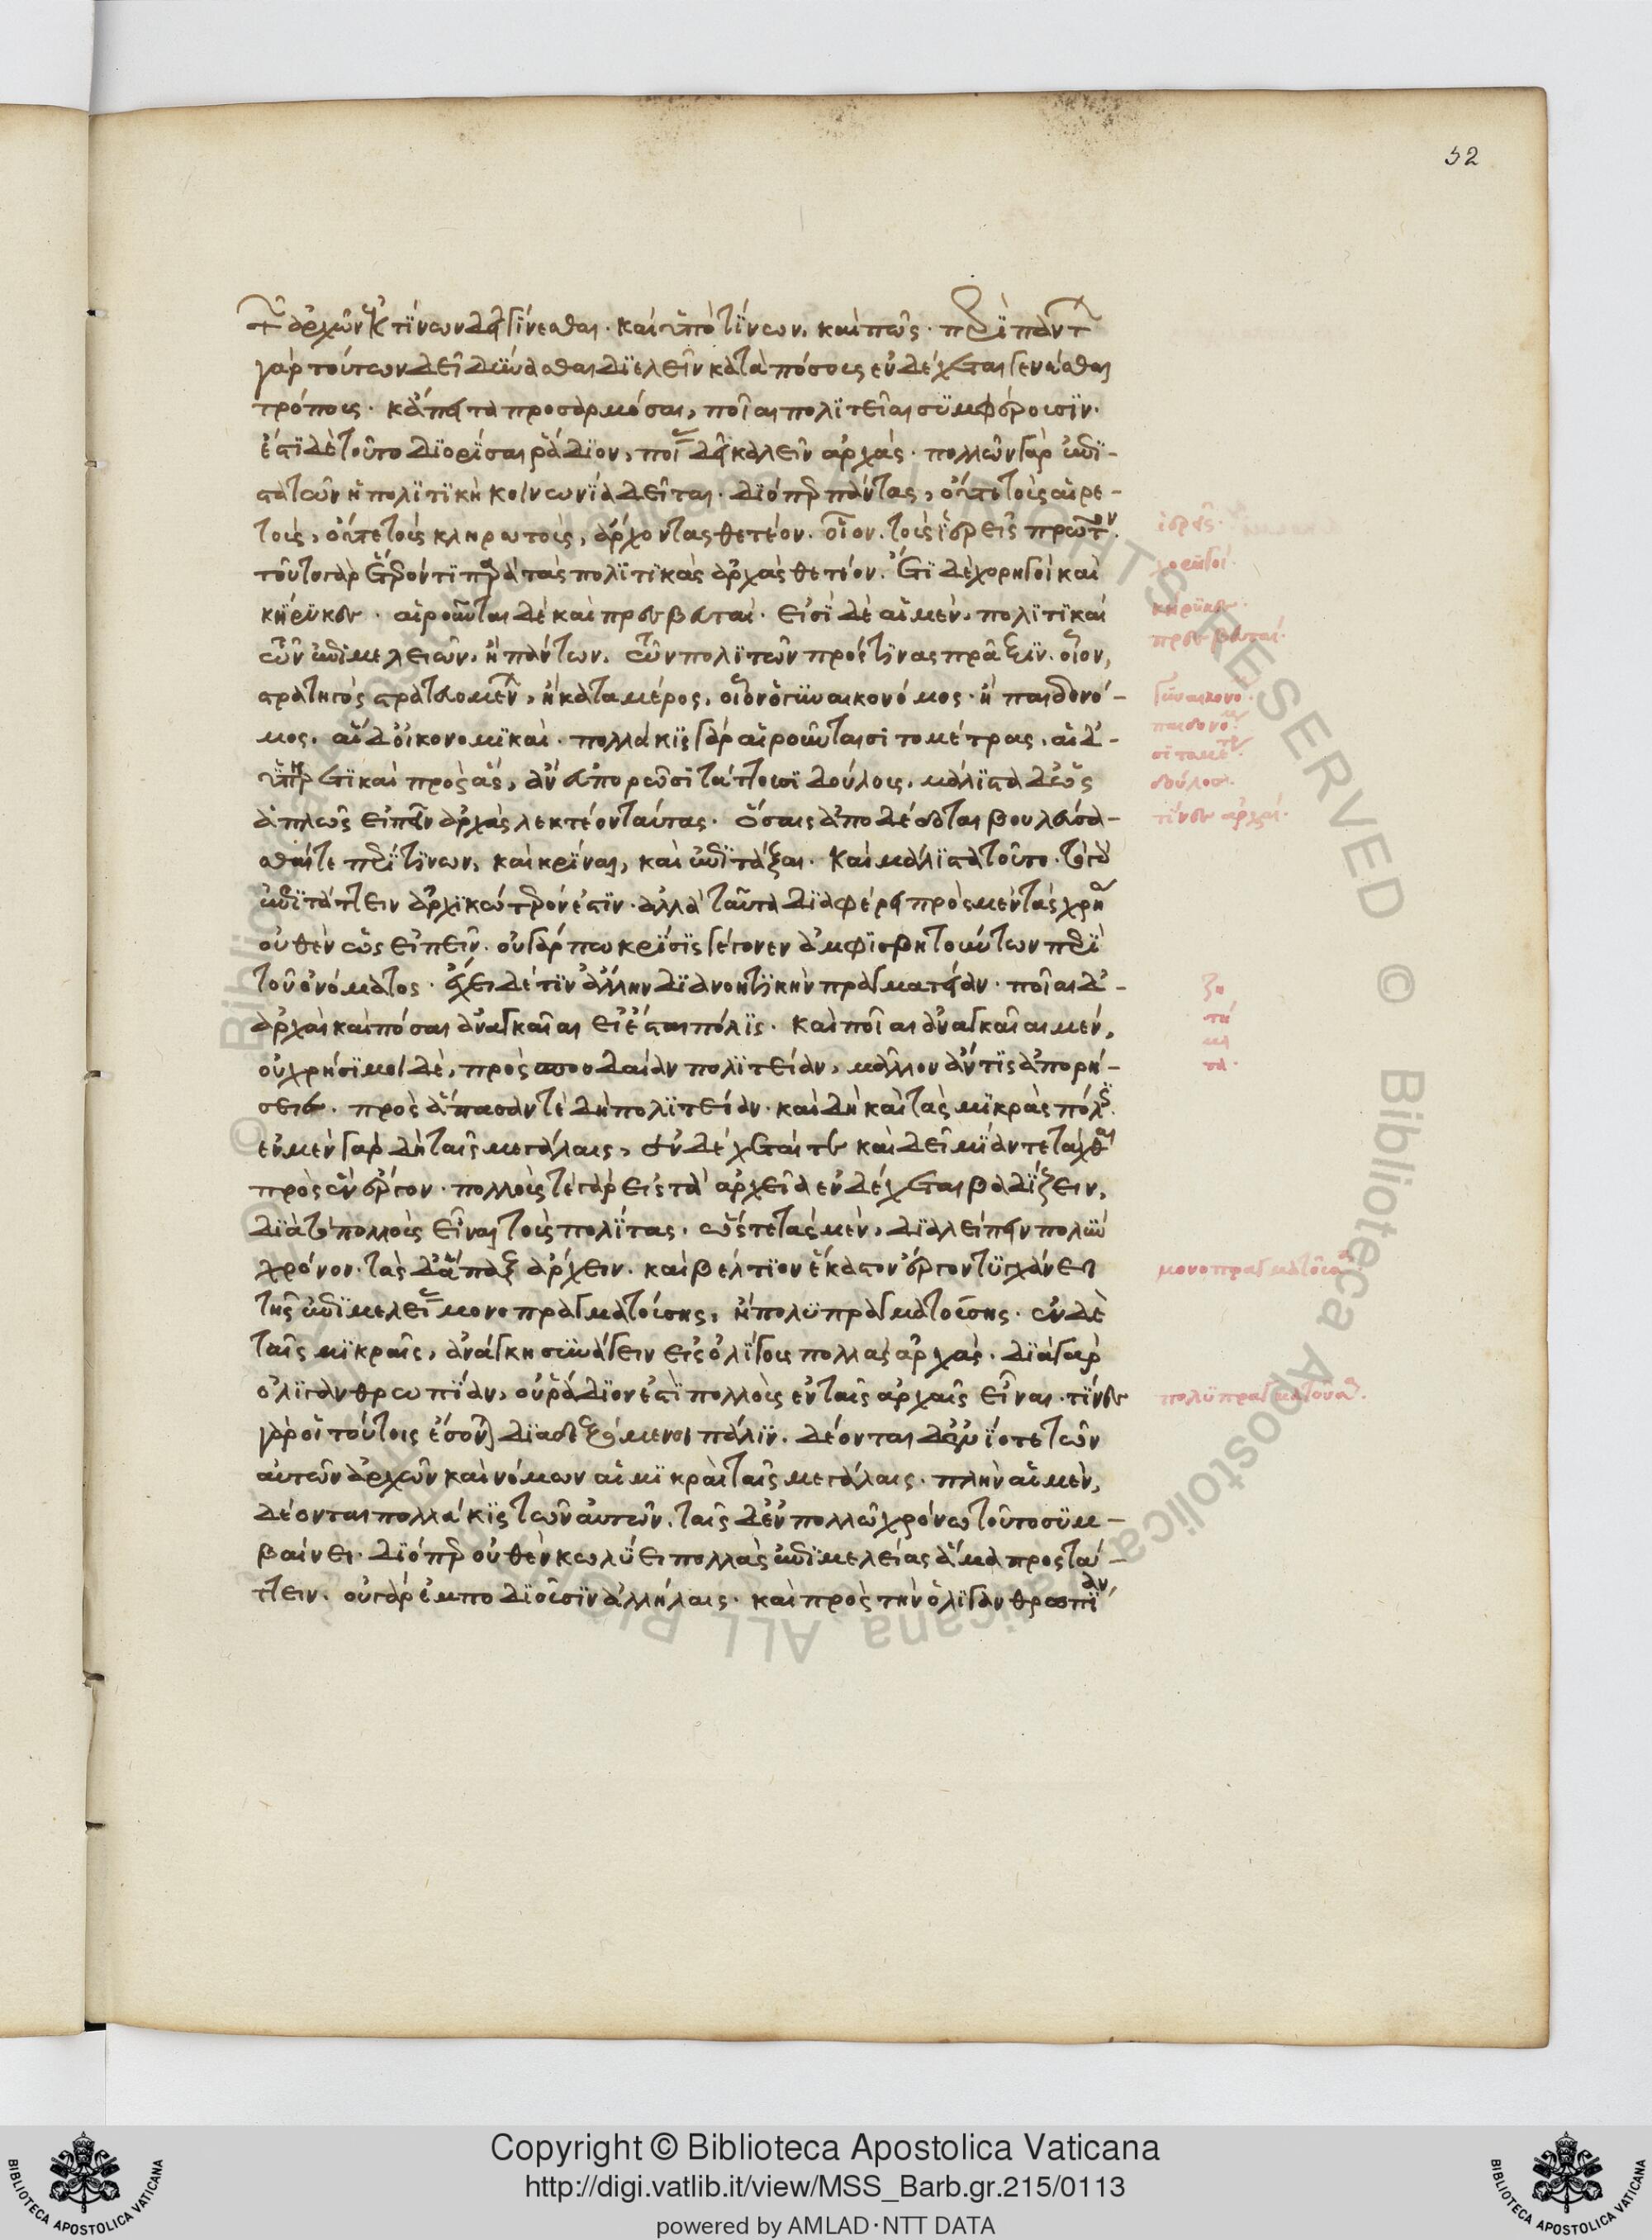 52
τῶν ἀρχῶν ἐκ τίνων δεῖ γίνεσθαι. καὶ ὑπὸ τίνων, καὶ πῶς. περὶ πάντων
γὰρ τούτων δεῖ δύνασθαι διελεῖν κατὰ πόσους ἐνδέχεται γενέσθαι
τρόπους. κἄπειτα προσαρμόσαι, ποῖαι πολιτεῖαι συμφέρουσιν.
ἔστι δὲ τοῦτο διορίσαι ῥάδιον, ποίας δεῖ καλεῖν ἀρχάς. πολλῶν γὰρ ἐπι-
στατῶν ἡ πολιτικὴ κοινωνία δεῖται. διόπερ πάντας, οὔτε τοὺς αἱρε-
τοὺς, οὔτε τοὺς κληρωτοὺς, ἄρχοντας θετέον. οἷον. τοὺς ἱερεῖς πρῶτον.
τοῦτο γὰρ ἕτερόν τι παρὰ τὰς πολιτικὰς ἀρχὰς θετέον. ἔτι δὲ χορηγοὶ καὶ
κήρυκες. αἱροῦνται δὲ καὶ πρεσβευταί. εἰσὶ δὲ αἱ μὲν, πολιτικαὶ
τῶν ἐπιμελειῶν, ἢ πάντων, τῶν πολιτῶν πρός τινας πρᾶξιν. οἷον,
στρατηγὸς στρατευομένων, ἢ κατὰ μέρος, οἷον ὁ γυναικονόμος. ἢ παιδονό-
μος. αἱ δ' οἰκονομικαί. πολλάκις γὰρ αἱροῦνται σιτομέτρας. αἱ δ'-
ὑπηρετικαὶ πρὸς ἃς, ἂν εὐπορῶσι τάττουσι δούλους. μάλιστα δ' ὡς
ἁπλῶς εἰπεῖν ἀρχὰς λεκτέον ταύτας. ὅσαις ἀποδέδοται βουλεύσα-
σθαί τε περί τινων, καὶ κρῖναι, καὶ ἐπιτάξαι. καὶ μάλιστα τοῦτο. τὸ γὰρ
ἐπιτάττειν ἀρχικώτερόν ἐστιν. ἀλλὰ ταῦτα διαφέρει πρὸς μὲν τὰς χρήσεις
οὐθὲν ὡς εἰπεῖν. οὐ γάρ πω κρίσις γέγονεν ἀμφισβητούντων περὶ
τοῦ ὀνόματος. ἔχει δέ τιν' ἄλλην διανοητικὴν πραγματείαν. ποῖαι δ'-
ἀρχαὶ καὶ πόσαι ἀναγκαῖαι εἰ ἔσται πόλις. καὶ ποῖαι ἀναγκαῖαι μὲν,
οὐ χρήσιμοι δὲ, πρὸς σπουδαίαν πολιτείαν, μᾶλλον ἄν τις ἀπορή-
σειε. πρὸς ἅπασάν τε δὴ πολιτείαν. καὶ δὴ καὶ τὰς μικρὰς πόλεις.
ἐν μὲν γὰρ δὴ ταῖς μεγάλαις, ἐνδέχεταί τε καὶ δεῖ μίαν τετάχθαι
πρὸς ἓν ἔργον. πολλούς τε γὰρ εἰς τὰ ἀρχεῖα ἐνδέχεται βαδίζειν,
διὰ τὸ πολλοὺς εἶναι τοὺς πολίτας. ὥστε τὰς μὲν, διαλείπειν πολὺν
χρόνον. τὰς δ' ἅπαξ ἄρχειν. καὶ βέλτιον ἕκαστον ἔργον τυγχάνει
τῆς ἐπιμελείας μονοπραγματούσης, ἢ πολυπραγματούσης. ἐν δὲ
ταῖς μικραῖς, ἀνάγκη συνάγειν εἰς ὀλίγους πολλὰς ἀρχάς. διὰ γὰρ
ὀλιγανθρωπίαν, οὐ ῥάδιόν ἐστι πολλοὺς ἐν ταῖς ἀρχαῖς εἶναι. τίνες
γὰρ οἱ τούτοις ἔσονται διαδεξόμενοι πάλιν. δέονται δ' ἐνίοτε τῶν
αὐτῶν ἀρχῶν καὶ νόμων αἱ μικραὶ ταῖς μεγάλαις. πλὴν αἱ μὲν,
δέονται πολλάκις τῶν αὐτῶν. ταῖς δ' ἐν πολλῷ χρόνῳ τοῦτο συμ-
βαίνει. διόπερ οὐθὲν κωλύει πολλὰς ἐπιμελείας ἅμα προστά-
ττειν. οὐ γὰρ ἐμποδιοῦσιν ἀλλήλαις. καὶ πρὸς τὴν ὀλιγανθρωπίαν,
ἱερεῖς.
χορηγοί.
κήρυκες.
πρεσβευταί.
γυναικονό.
παιδονόμος.
σιτομέτραι.
δούλοις.
τίνες ἀρχαί.
ζη
τή
μα
τα.
μονοπραγματούσης
πολυπραγματούσης.
Copyright © Biblioteca Apostolica Vaticana
http://digi.vatlib.it/view/MSS_Barb.gr.215/0113
powered by AMLAD·NTT DATA